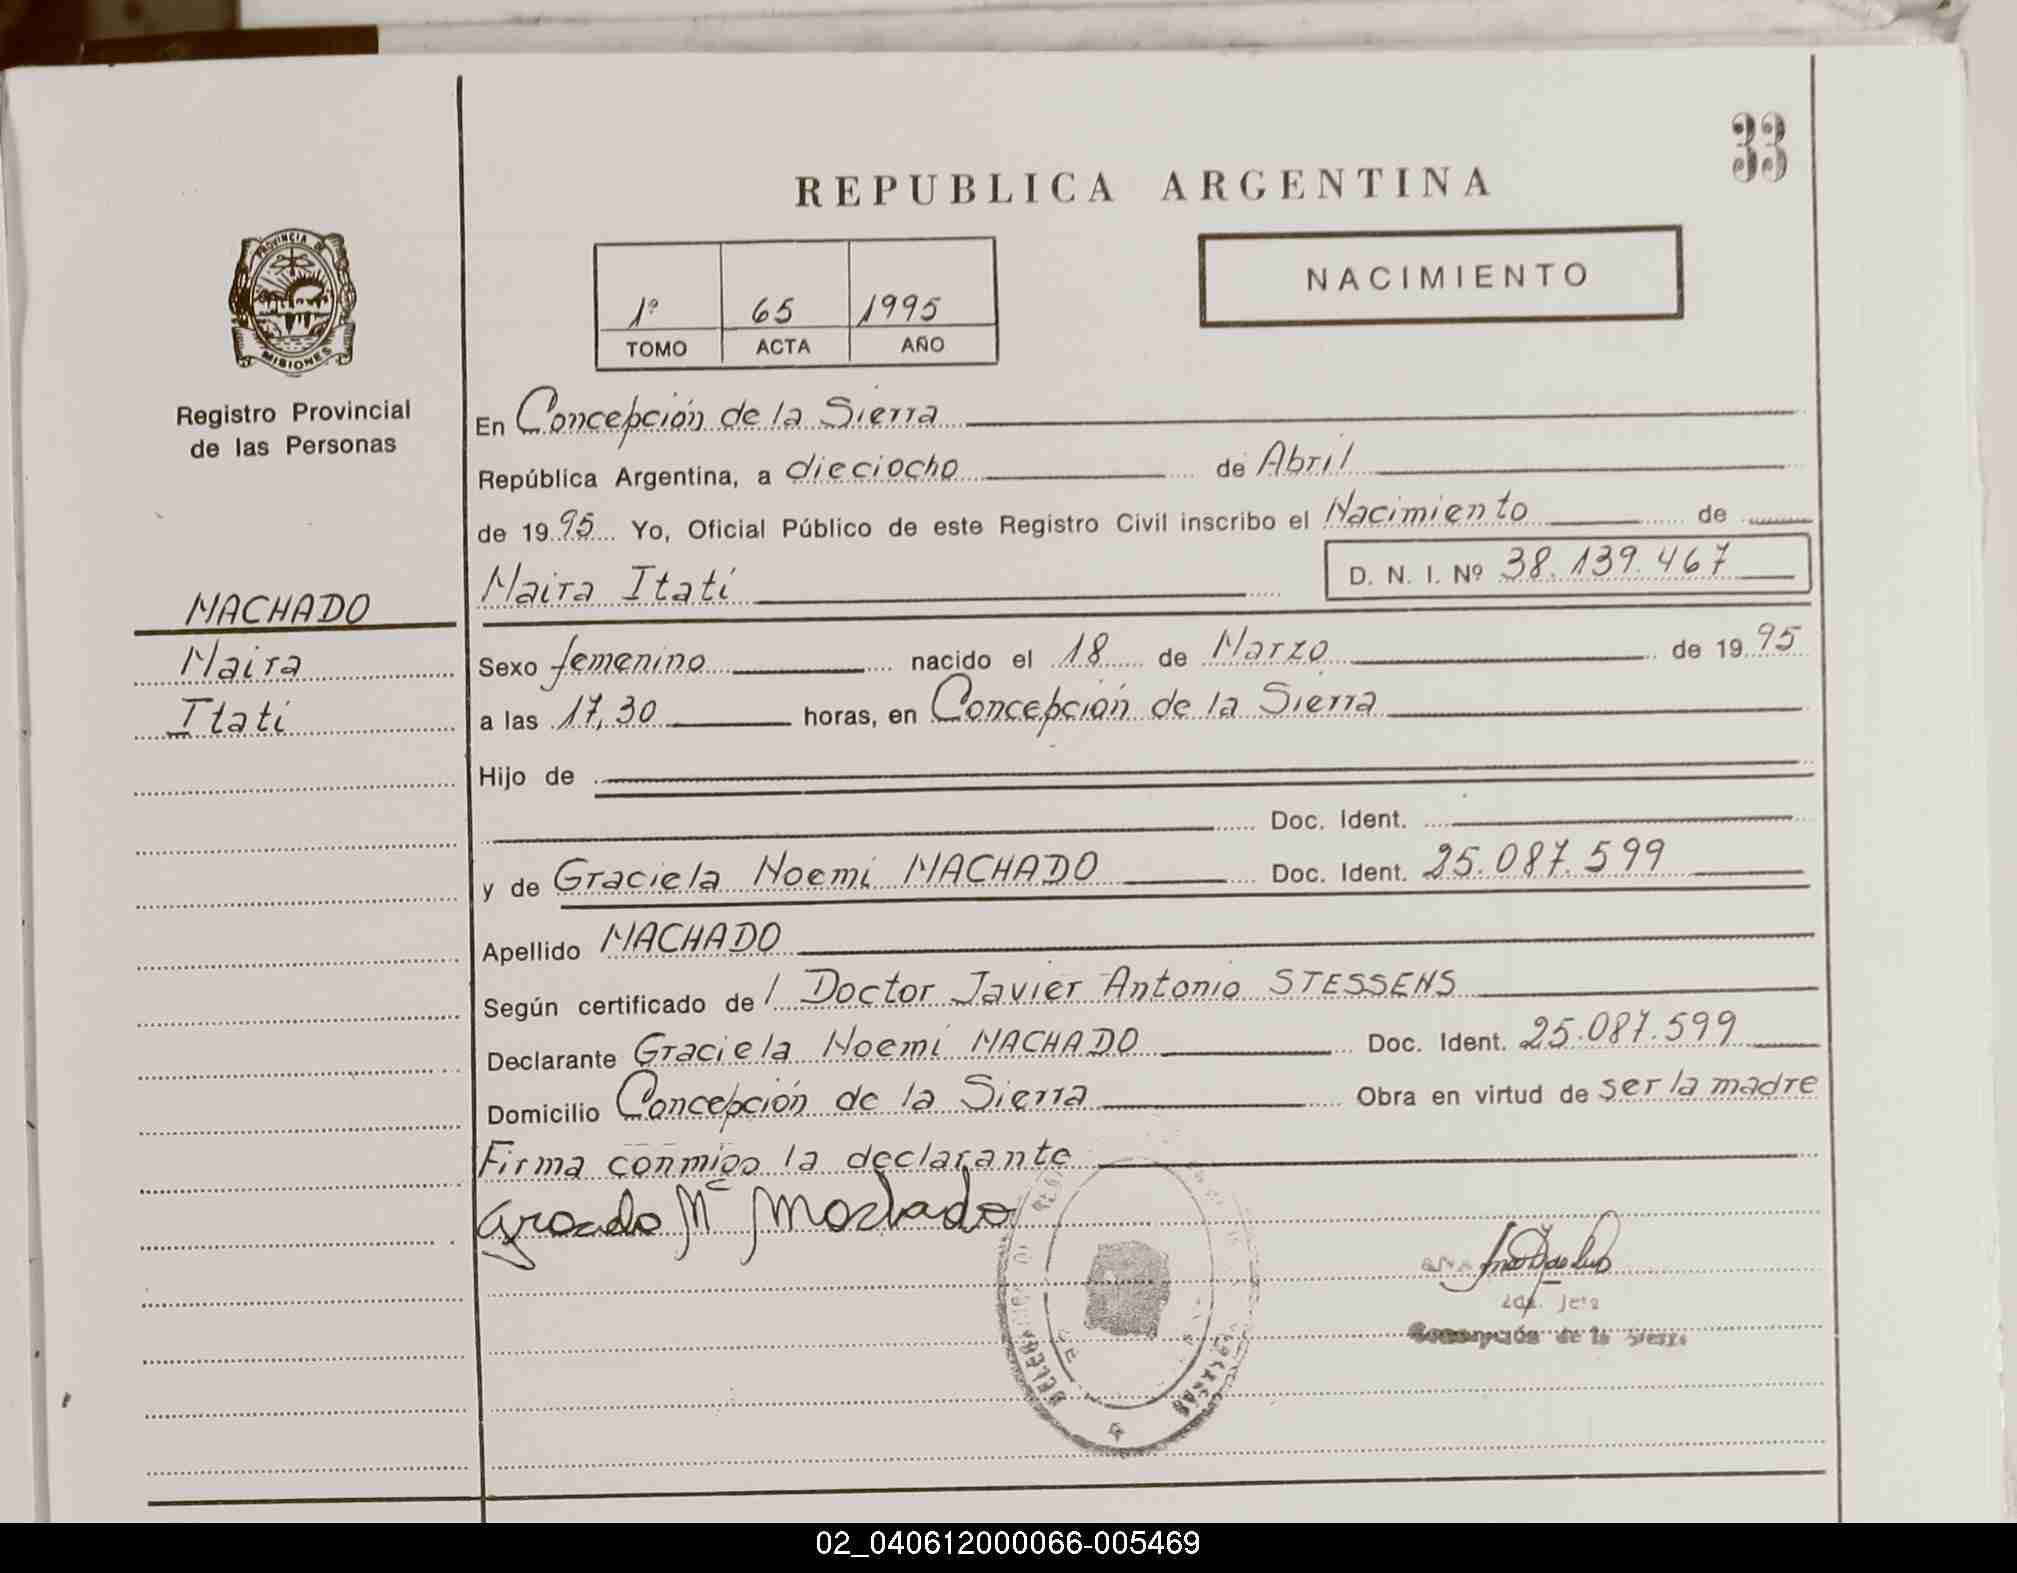 33
REPUBLICA ARGENTINA
PROVINCIA DE
MISIONES
Registro Provincial
de las Personas
1º 65 1995
TOMO ACTA AÑO
NACIMIENTO
En Concepción de la Sierra
República Argentina, a dieciocho de Abril
de 1995 Yo, Oficial Público de este Registro Civil inscribo el Nacimiento de
Maira Itatí D. N. I. Nº 38.139.467
MACHADO
Maira
Itatí
Sexo femenino nacido el 18 de Marzo de 1995
a las 17,30 horas, en Concepción de la Sierra
Hijo de
Doc. Ident.
y de Graciela Noemí MACHADO Doc. Ident. 25.087.599
Apellido MACHADO
Según certificado de / Doctor Javier Antonio STESSENS
Declarante Graciela Noemí MACHADO Doc. Ident. 25.087.599
Domicilio Concepción de la Sierra Obra en virtud de ser la madre
Firma conmigo la declarante
Machado
Concepción de la Sierra
02_040612000066-005469